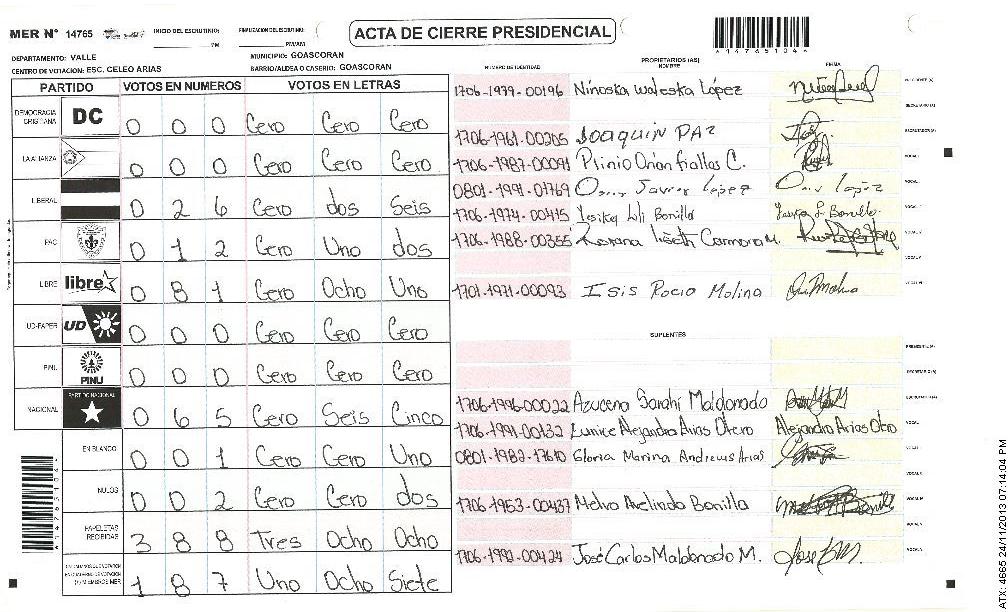 MER N° 14765
INICIO DEL ESCRUTINIO: PM
FINALIZACION DEL ESCRUTINIO: PM/AM
ACTA DE CIERRE PRESIDENCIAL
DEPARTAMENTO: VALLE
MUNICIPIO: GOASCORAN
CENTRO DE VOTACION: ESC. CELEO ARIAS
BARRIO/ALDEA O CASERIO: GOASCORAN
PARTIDO VOTOS EN NUMEROS VOTOS EN LETRAS
DEMOCRACIA CRISTIANA DC 0 0 0 Cero Cero Cero
LA ALIANZA 0 0 0 Cero Cero Cero
LIBERAL 0 2 6 Cero dos Seis
PAC 0 1 2 Cero Uno dos
LIBRE libre 0 8 1 Cero Ocho Uno
UD-FAPER UD 0 0 0 Cero Cero Cero
PINU PINU 0 0 0 Cero Cero Cero
NACIONAL PARTIDO NACIONAL 0 6 5 Cero Seis Cinco
EN BLANCO 0 0 1 Cero Cero Uno
NULOS 0 0 2 Cero Cero dos
PAPELETAS RECIBIDAS 3 8 8 Tres Ocho Ocho
1 8 7 Uno Ocho Siete
NUMERO DE IDENTIDAD
PROPIETARIOS (AS)
NOMBRE
FIRMA
1706-1979-00196 Ninoska Waleska López
1706-1961-00205 JOAQUIN PAZ
1706-1987-00091 Plinio Orian Fiallos C.
0801-1991-01769 Javier Lopez
1706-1974-00415 Yesika Lili Bonilla
1706-1988-00355 Lizeth Carmona M.
1701-1971-00093 Isis Rocio Molina
SUPLENTES
1706-1996-00022 Azucena Sarahi Maldonado
1706-1991-00132 Eunice Alejandra Arias Otero Alejandra Arias Otero
0801-1982-17610 Gloria Marina Andrews Arias
1706-1953-00437 Melva Avelinda Bonilla
1706-1992-00424 José Carlos Maldonado M.
ATX: 4665 24/11/2013 07:14:04 PM